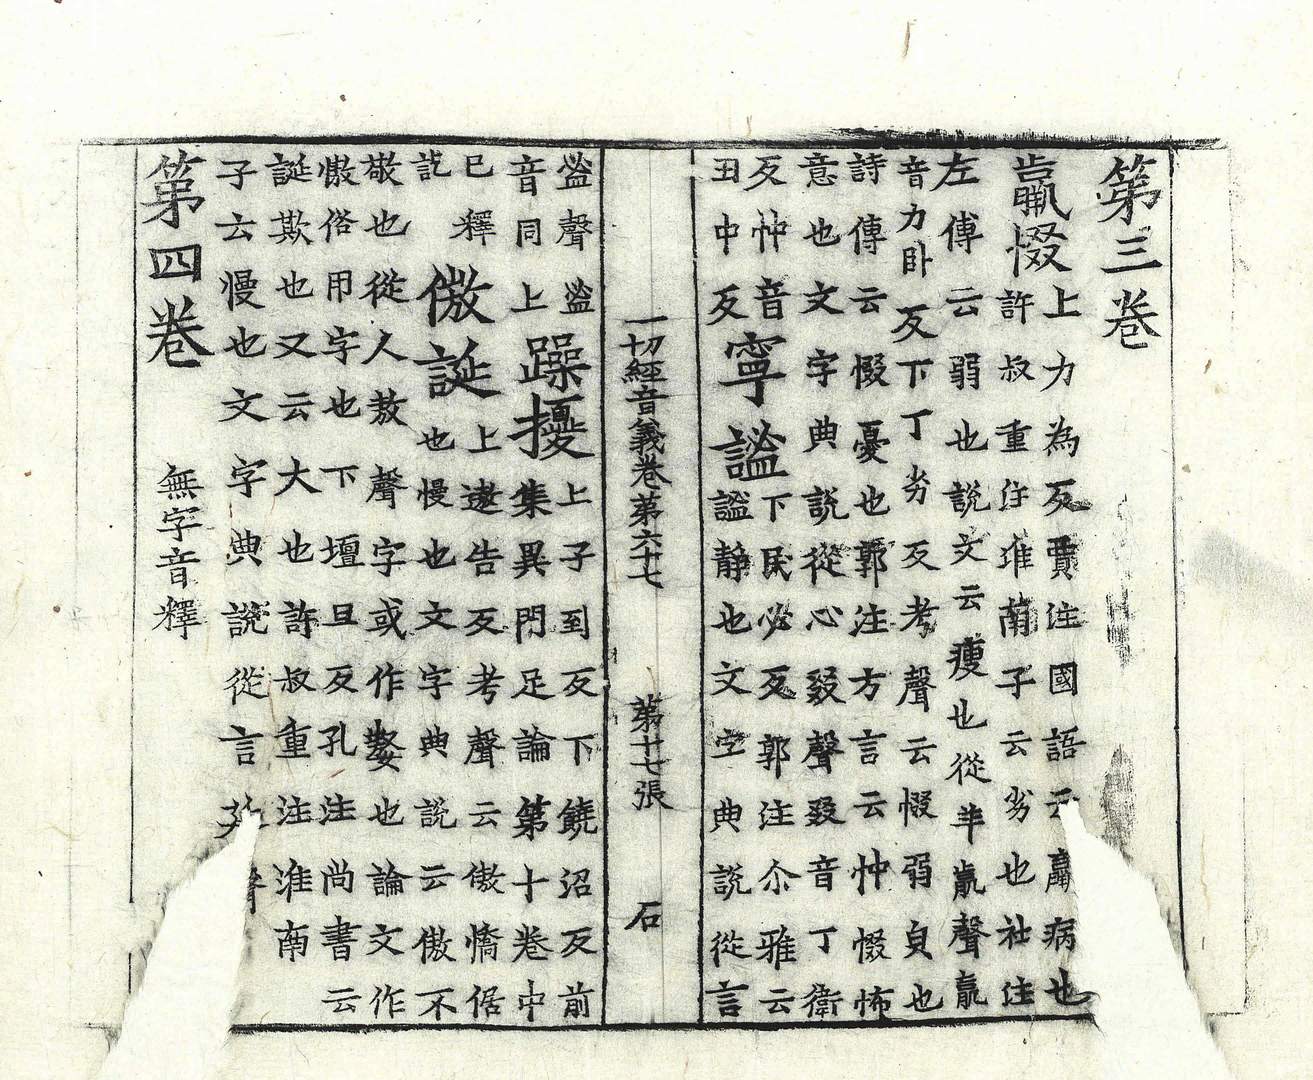 第三卷
羸惙
上力為反賈注國語云羸病也
許叔重注淮南子云劣也社注
左傳云弱也說文云瘦也從羊𣎆聲𣎆
音力卧反下丁劣反考聲云惙弱皃也
詩傳云惙憂也郭注方言云忡惙怖
意也文字典說從心叕聲叕音丁衛
反忡音
丑中反
寧謐
下民必反郭注尒雅云
謐静也文字典說從言
一切經音義卷第六十七 第十七張 石
𥁑聲𥁑
音同上
躁擾
上子到反下饒沼反前
集異門足論第十卷中
已釋
訖
傲誕
上遨告反考聲云傲憍倨
也慢也文字典說云傲不
敬也從人敖聲字或作嫯也論文作
慠俗用字也下壇旦反孔注尚書云
誕欺也又云大也許叔重注淮南
子云慢也文字典說從言延聲
第四卷 無字音釋